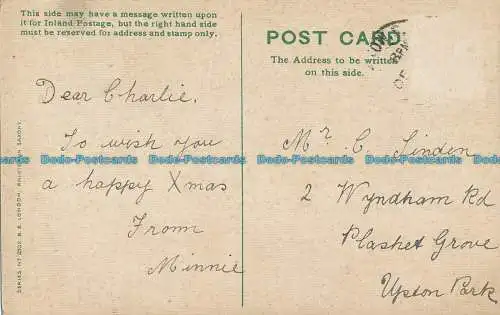 This side may have a message written upon
it for Inland Postage, but the right hand side
must be reserved for address and stamp only.
Dear Charlie.
To wish you
a happy Xmas
From
Minnie
POST CARD
The Address to be written
on this side.
Mr C. Linden
2 Wyndham Rd
Plashet Grove
Upton Park
Dodo-Postcards Dodo-Postcards Dodo-Postcards Dodo-Postcards Dodo-Postcards